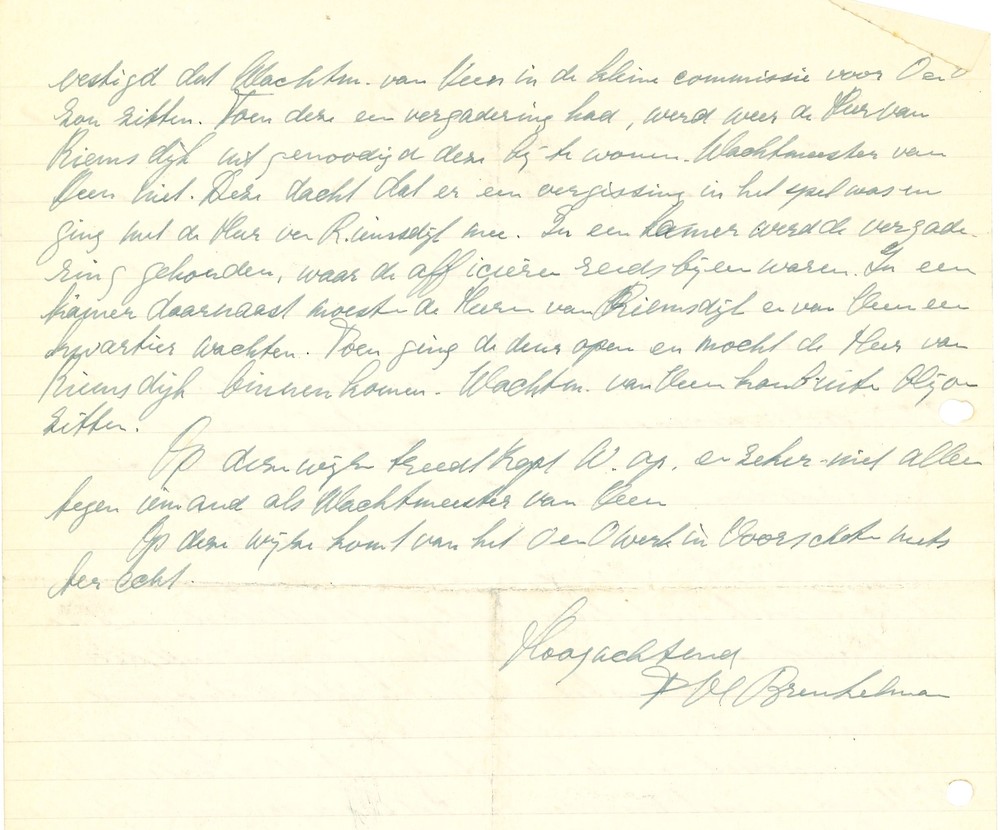 vestigd dat Wachtm. van Veen in de kleine commissie voor O en O
zou zitten. Toen deze een vergadering had, werd weer de Heer van
Riemsdijk uitgenoodigd deze bij te wonen. Wachtmeester van
Veen niet. Deze dacht dat er een vergissing in het spel was en
ging met de Heer van Riemsdijk mee. In een kamer werd de vergade-
ring gehouden, waar de officieren reeds bijeen waren. In een
kamer daarnaast moesten de Heeren van Riemsdijk en van Veen een
kwartier wachten. Toen ging de deur open en mocht de Heer van
Riemsdijk binnenkomen. Wachtm. van Veen kon buiten blijven
zitten.
Op deze wijze treedt Kapt W. op, en zeker niet alleen
tegen iemand als Wachtmeester van Veen
Op deze wijze komt van het O en O werk in Voorschoten niets
terecht.
Hoogachtend
Brenkelman